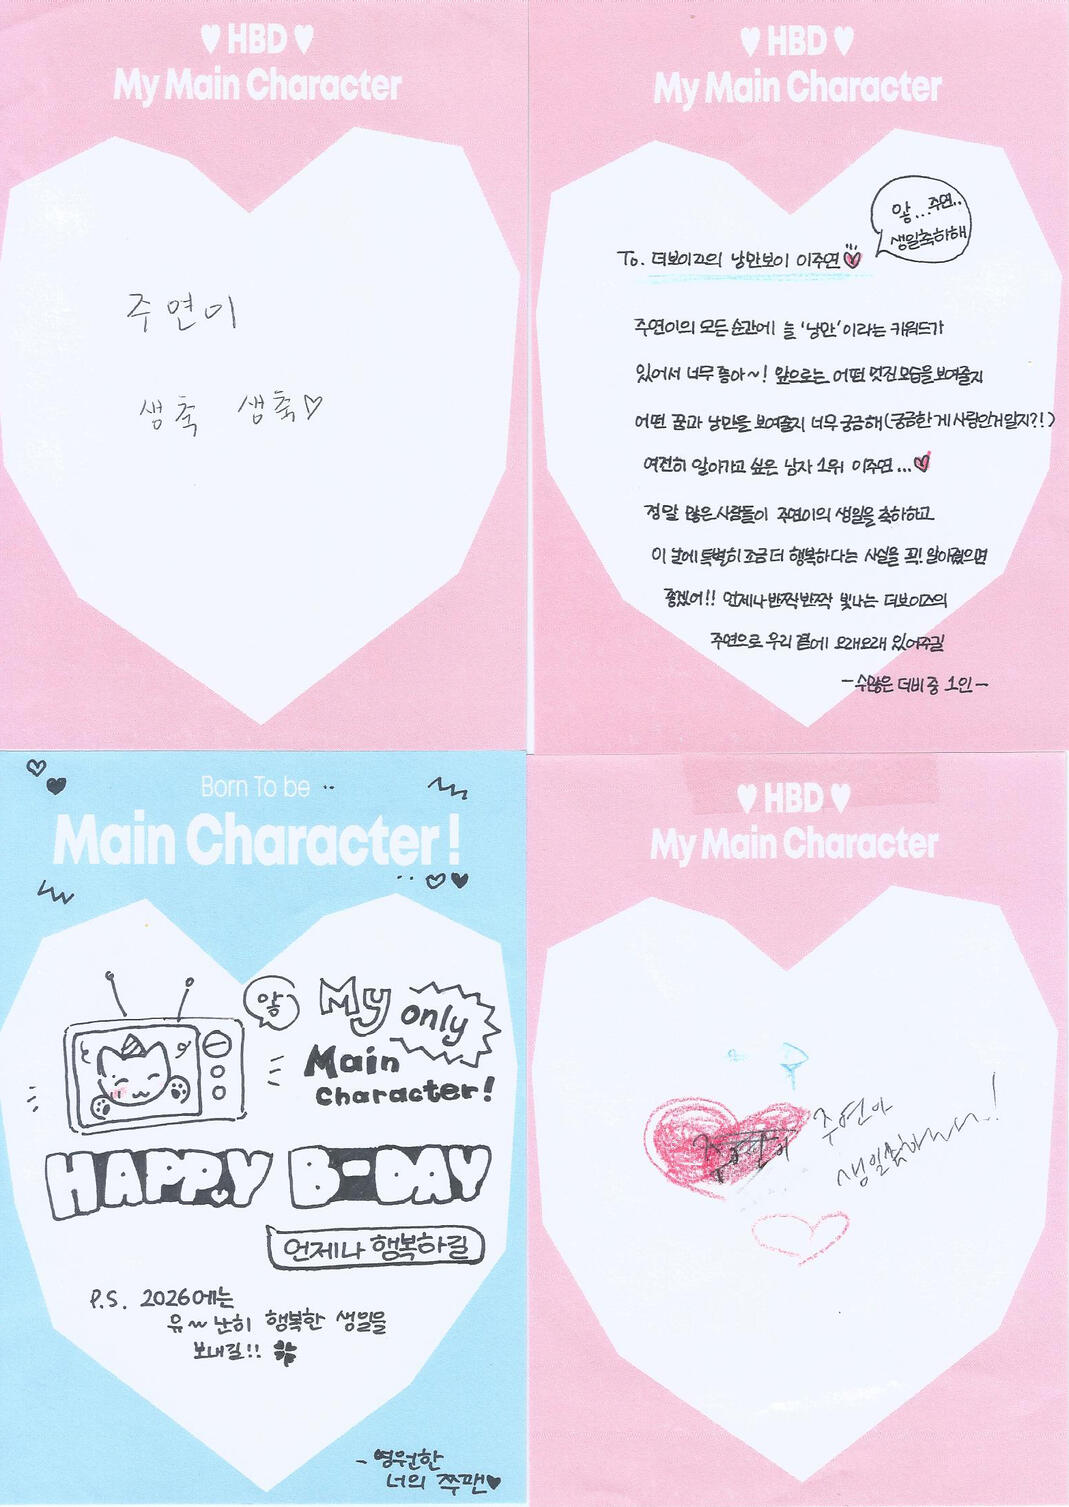 ♥ HBD ♥
My Main Character
주연이
생축 생축♡
♥ HBD ♥
My Main Character
앟...주연..
생일축하해
To. 더보이즈의 낭만보이 이주연♡
주연이의 모든 순간에 늘 '낭만'이라는 키워드가
있어서 너무 좋아~! 앞으로는 어떤 멋진 모습을 보여줄지
어떤 꿈과 낭만을 보여줄지 너무 궁금해(궁금한 게 사랑인거알지?!)
여전히 알아가고 싶은 남자 1위 이주연...♡
정말 많은 사람들이 주연이의 생일을 축하하고
이 날에 특별히 조금 더 행복하다는 사실을 꼭! 알아줬으면
좋겠어!! 언제나 반짝반짝 빛나는 더보이즈의
주연으로 우리 곁에 오래오래 있어주길
-수많은 더비 중 1인-
Born To be
Main Character!
앟
My only
Main
Character!
HAPPY B-DAY
언제나 행복하길
P.S. 2026에는
유~난히 행복한 생일을
보내길!!
-영원한
너의 쭈팬♥
♥ HBD ♥
My Main Character
주연아